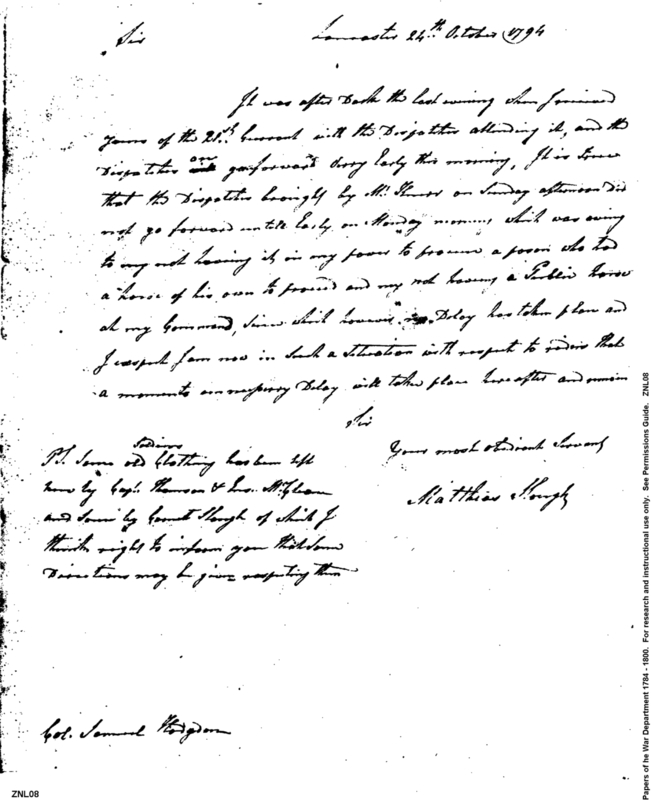 Sir
Lancaster 24th October 1794
It was after Dark the last evening when I received
yours of the 21st Current with the Dispatches attending it, and the
Dispatches are gon forward Very Early this morning, It is True
that the Dispatches brought by Mr. on Sunday afternoon did
not go forward untill Early on Monday morning which was owing
to my not having it in my power to procure a person who had
a horse of his own to proceed and my not having a Public horse
at my Command, Since which however no Delay has taken place and
I expect I am now in Such a Situation with respect to riders that
a moments unnessery Delay will take place hereafter and remain
Sir
Your most obedient Servant
Matthias Slough
PS. Some old Soldiers Clothing has been left
here by Capt. Thomson & McGlean
and Some by Cornet Slough of which I
think right to inform you that Some
Directions may be given respecting them
Col. Samuel Hodgdon
ZNL08
Papers of he War Department 1784 - 1800. For research and instructional use only. See Permissions Guide. ZNL08